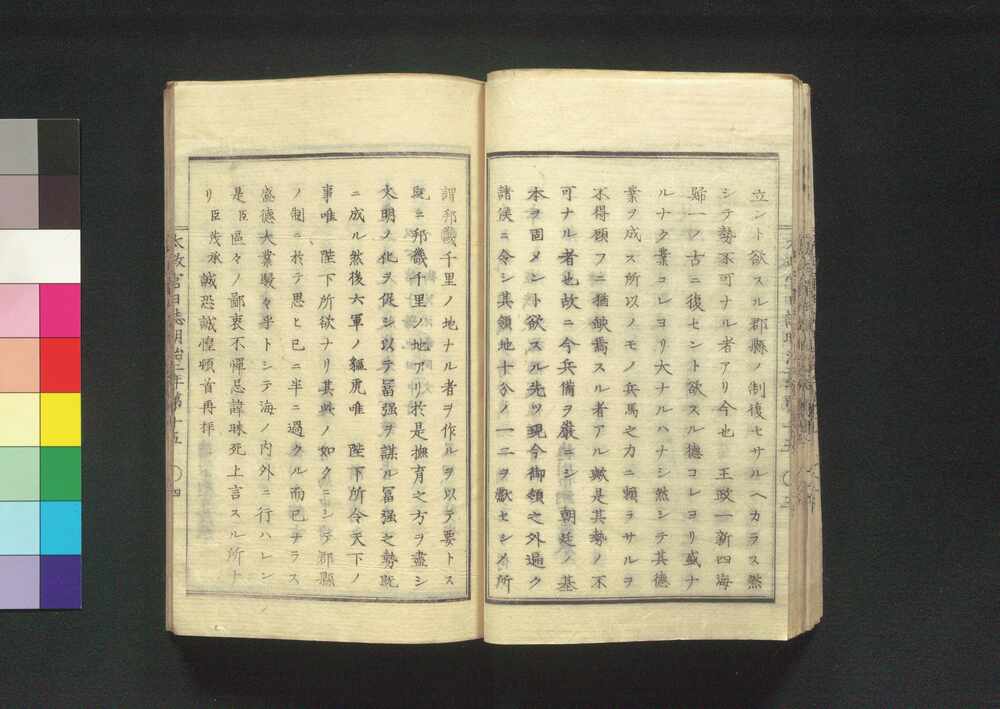 立ント欲スル郡縣ノ制復セサルヘカラス然
シテ勢不可ナル者アリ今也　王政一新四海
歸一ノ古ニ復セント欲スル德コレヨリ盛ナ
ルナク業コレヨリ大ナルハナシ然シテ其德
業ヲ成ス所以ノモノ兵馬之力ニ頼ラサルヲ
不得顧フニ猶缺焉スル者アル歟是其勢ノ不
可ナル者也故ニ今兵備ヲ嚴ニシ　朝廷ノ基
本ヲ固メント欲スル先ツ現今御領之外遍ク
諸侯ニ令シ其領地十分ノ一二ヲ獻セシメ所
謂邦畿千里ノ地ナル者ヲ作ルヲ以テ要トス
既ニ邦畿千里ノ地アリ於是撫育之方ヲ盡シ
文明ノ化ヲ促シ以テ冨强ヲ謀ル冨强之勢既
ニ成ル然後六軍ノ貔虎唯　陛下所令天下ノ
事唯　陛下所欲ナリ其此ノ如クニシテ郡縣
ノ制ニ於テ思ヒ已ニ半ニ過クル而已ナラス
盛德大業駸々乎トシテ海ノ内外ニ行ハレン
是臣區々ノ鄙衷不憚忌諱昧死上言スル所ナ
リ臣茂承誠恐誠惶頓首再拜
太政官日誌明治二年第十五　〇四